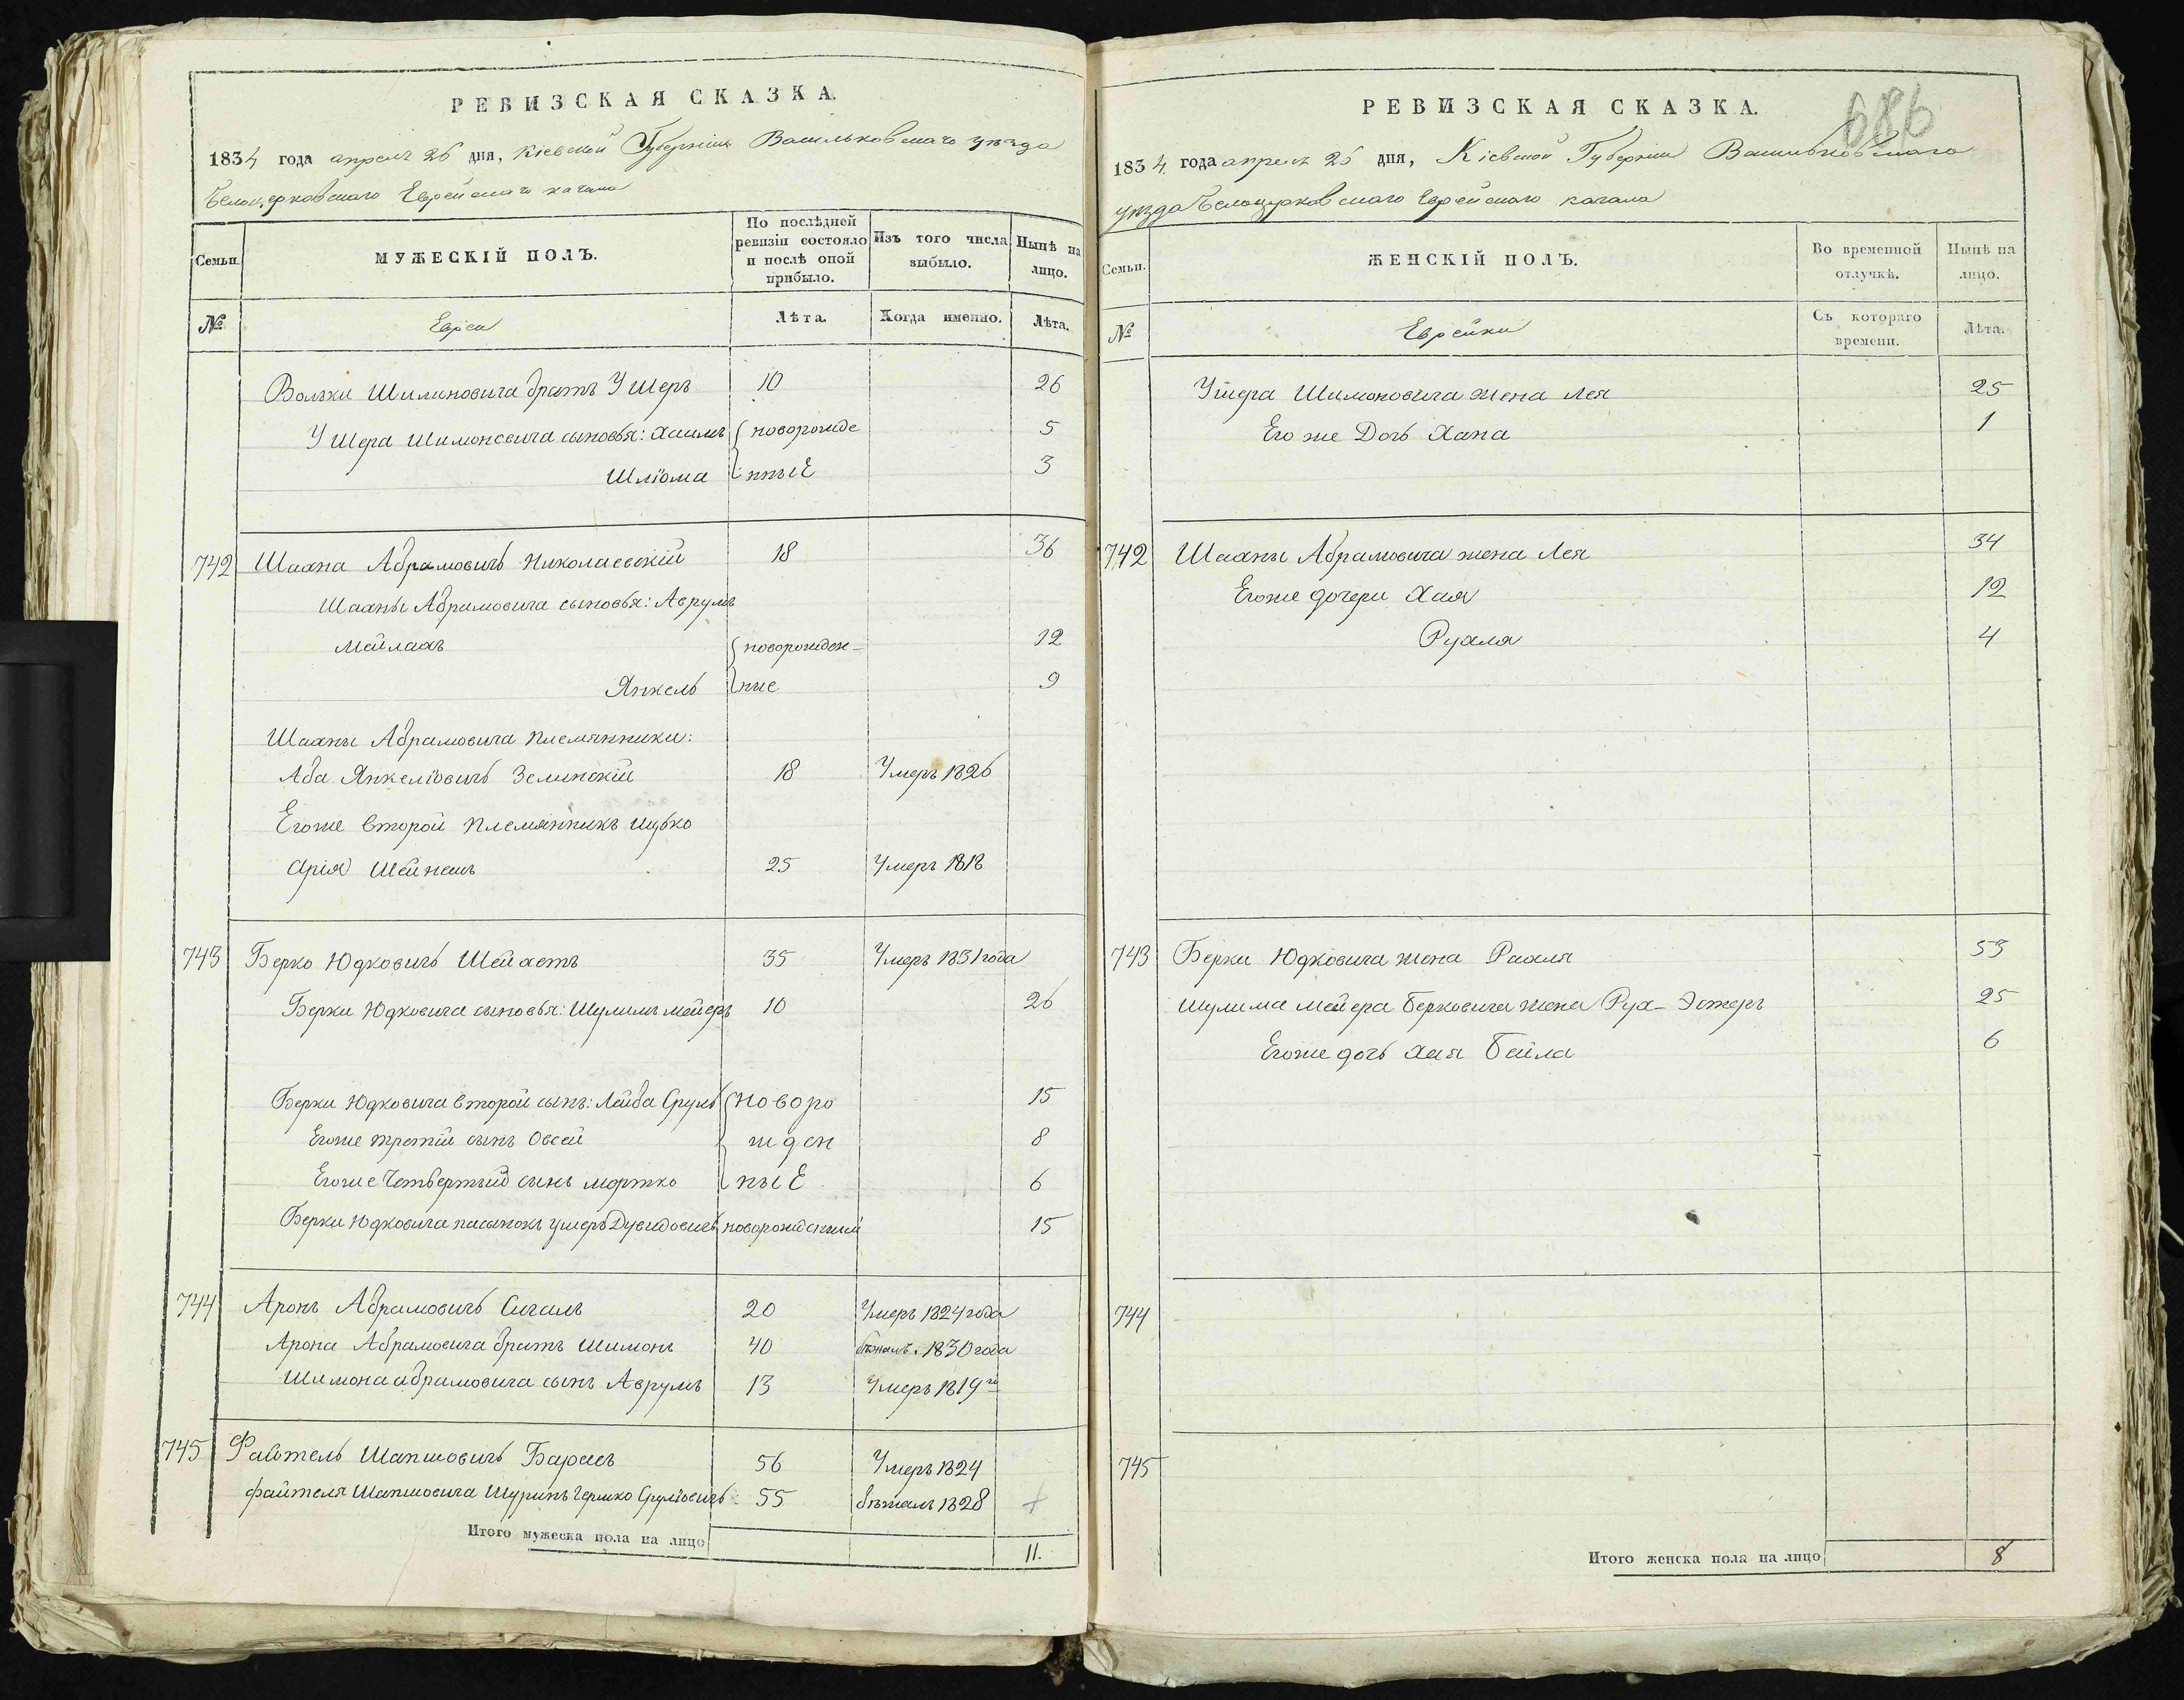 РЕВИЗСКАЯ СКАЗКА.
1834 года апреля 26 дня, Кіевской Губерніи Васильковскаго уѣзда
Белоцерковскаго Еврейскаго кагала
Семьи.
МУЖЕСКІЙ ПОЛЪ.
По послѣдней ревизіи состояло и послѣ оной прибыло.
Изъ того числа выбыло.
Нынѣ на лицо.
№
Евреи
Лѣта.
Когда именно.
Лѣта.
Вольки Шимоновича братъ Ушеръ 10 26
Ушера Шимоновича сыновья: Хаимъ новорожде 5
Шліома нные 3
742 Шахна Абрамовичъ Николаевскій 18 36
Шахны Абрамовича сыновья: Аврумъ
Мейлахъ новорожден- 12
Янкель ные 9
Шахны Абрамовича племянники:
Аба Янкеліовичъ Зелинскій 18 Умеръ 1826
Егоже второй племянникъ Ицько
Арія Шейнешъ 25 Умеръ 1818
743 Берко Юдковичъ Шейхетъ 35 Умеръ 1831 года
Берки Юдковича сыновья: Шулимъ Мейеръ 10 26
Берки Юдковича второй сынъ: Лейба Сруль новоро 15
Егоже третій сынъ Овсей жден 8
Егоже четвертый сынъ Мортко ные 6
Берки Юдковича пасынокъ Ушеръ Дувидовичъ новорожденный 15
744 Аронъ Абрамовичъ Сигалъ 20 Умеръ 1824 года
Арона Абрамовича братъ Шимонъ 40 бѣжалъ. 1830 года
Шимона Абрамовича сынъ Аврумъ 13 Умеръ 1819 го
745 Файтель Шапшовичъ 56 Умеръ 1824
Файтеля Шапшовича Шуринъ Гершко Сруліовичъ 55 бѣжалъ 1828
Итого мужеска пола на лицо 11.
686
РЕВИЗСКАЯ СКАЗКА.
1834 года апреля 26 дня, Кіевской Губерніи Васильковскаго
уѣзда Белоцерковскаго Еврейскаго кагала
Семьи.
ЖЕНСКІЙ ПОЛЪ.
Во временной отлучкѣ.
Нынѣ на лицо.
№
Еврейки
Съ котораго времени.
Лѣта.
Ушера Шимоновича жена Лея 25
Его же Дочь Хана 1
742 Шахны Абрамовича жена Лея 34
Егоже дочери Хая 12
Рухля 4
743 Берки Юдковича жена Рахля 53
Шулима Мейера Берковича жена Рух-Эстеръ 25
Егоже дочь Хая Бейла 6
744
745
Итого женска пола на лицо 8